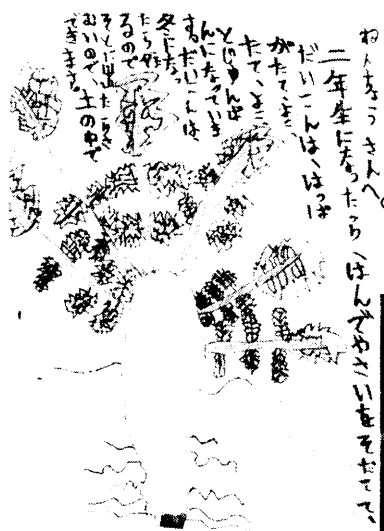 ねんちょうさんへ。
二年生になったら、はんでやさいをそだてて、
だいこんは、はっぱ
がたて、よこ、
たて、よこ
とじゅんば
んになっていき
ます。だいこんは
冬になっ
たら
るので
そとに出たら
むいので、土の中で
てきます。